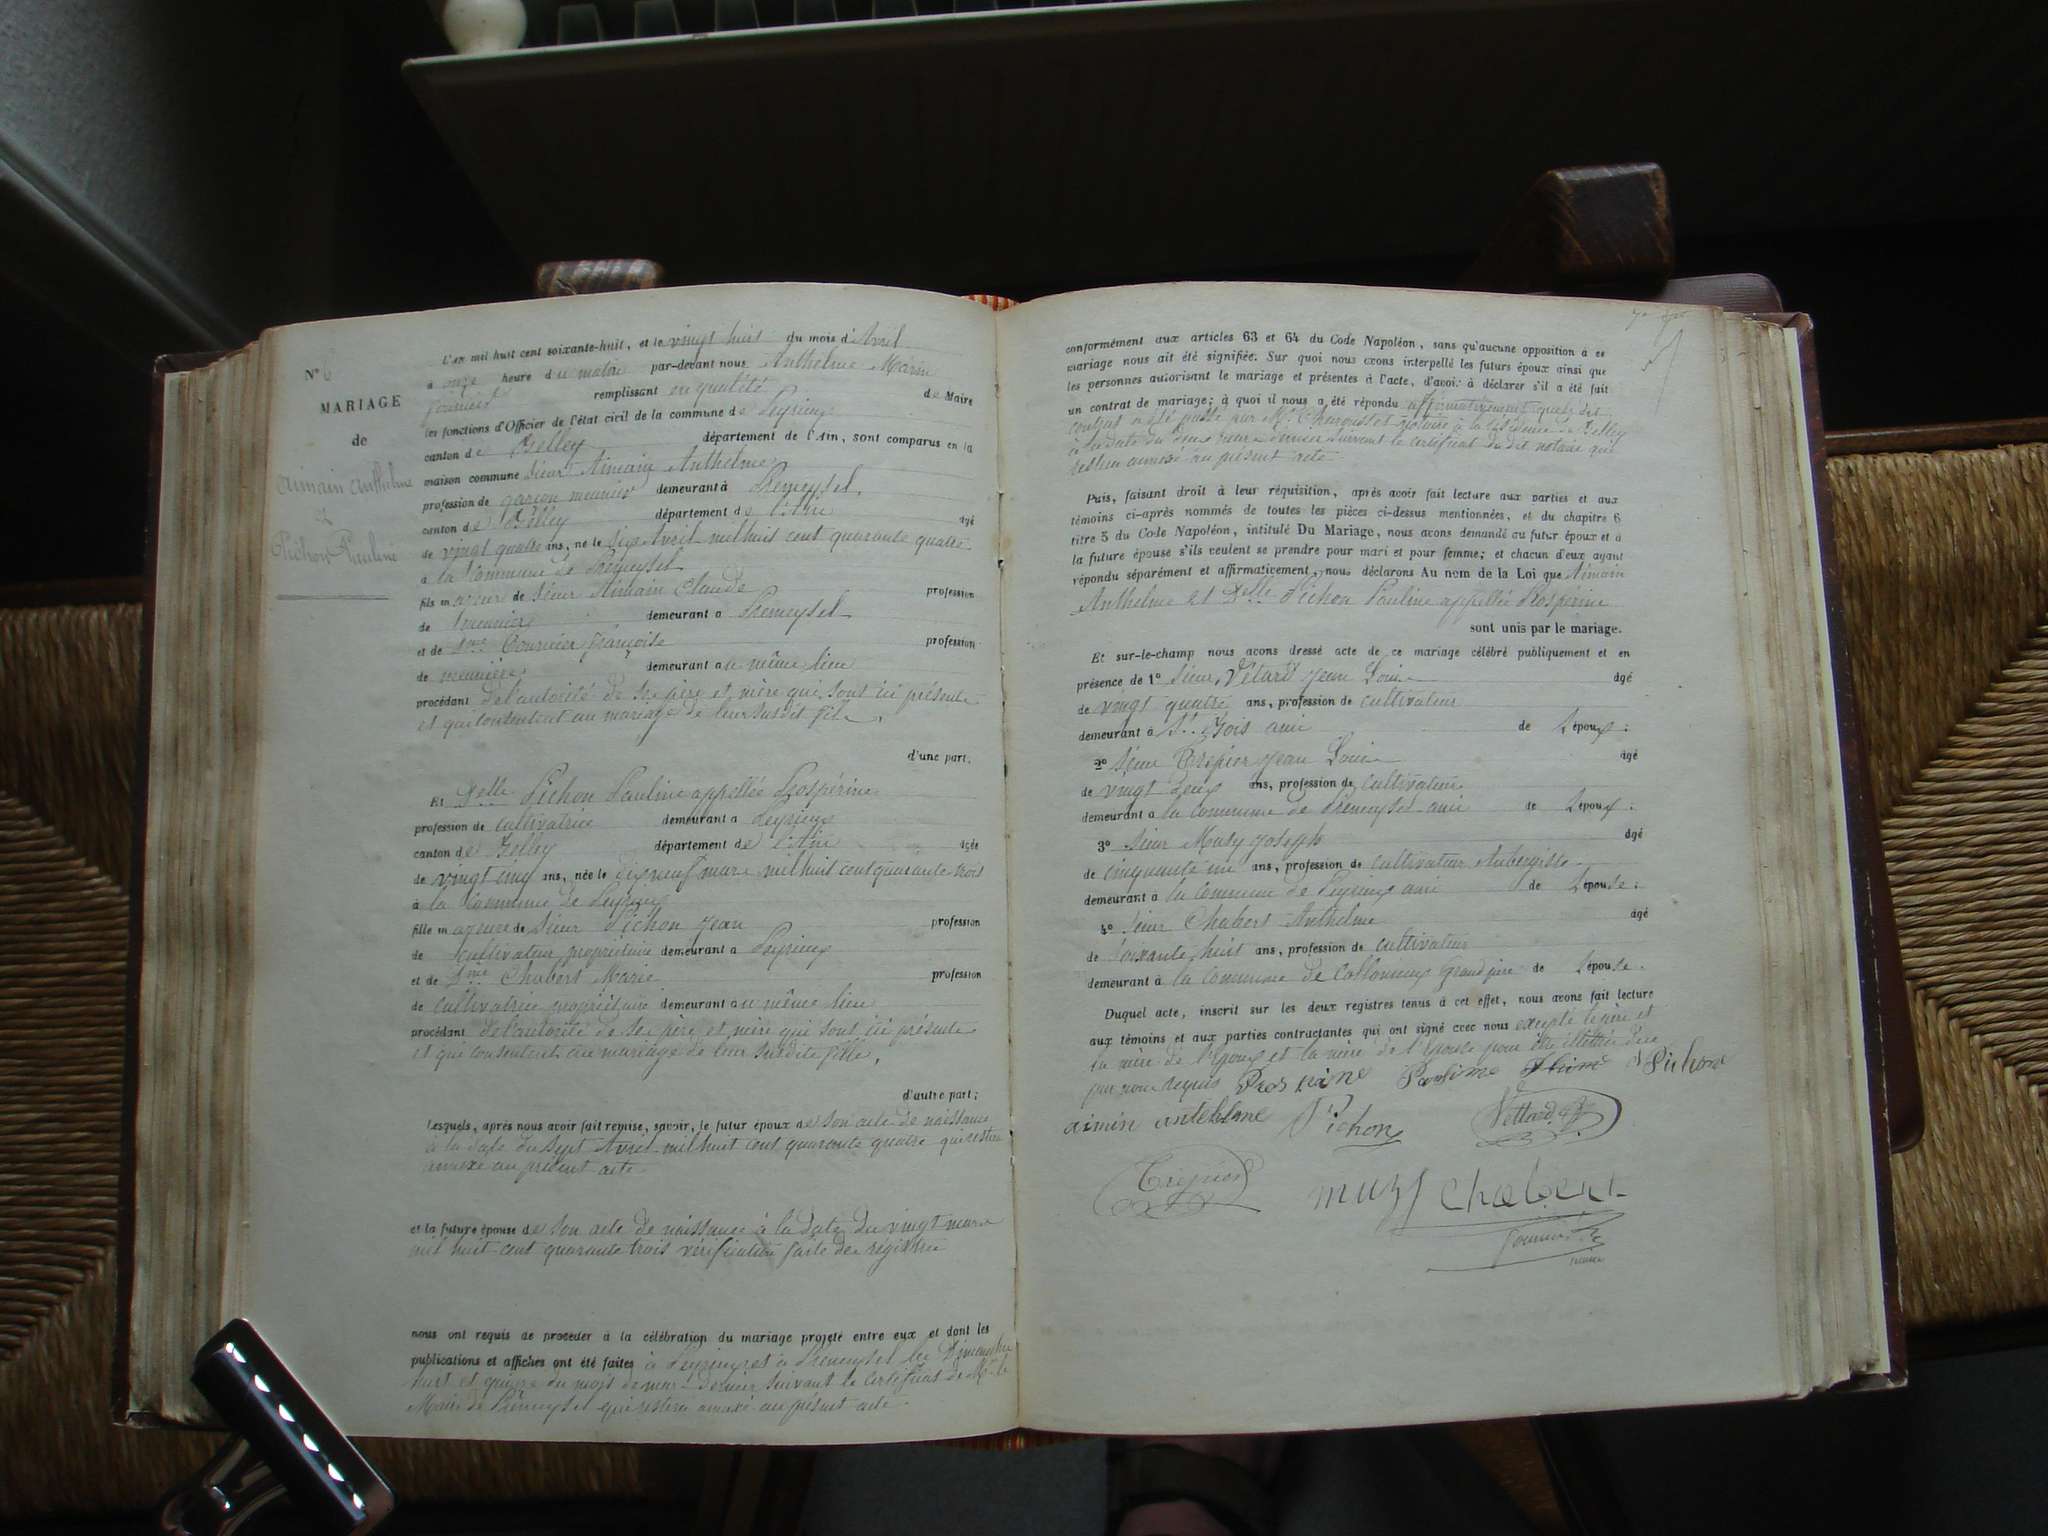 N° 6
MARIAGE
de
Aimain Anthelme
et
Pichon Pauline
L'an mil huit cent soixante-huit, et le vingt huit du mois d'Avril
à onze heure du matin par-devant nous Anthelme Marin
Fournier remplissant en qualité de Maire
les fonctions d'Officier de l'état civil de la commune de Peyrieux
canton de Belley département de l'Ain, sont comparus en la
maison commune sieur Aimain Anthelme
profession de garçon meunier demeurant à Prémeyzel
canton de Belley département de l'Ain âgé
de vingt quatre ans, né le six Avril mil huit cent quarante quatre
à la Commune de Prémeyzel
fils majeur de Sieur Aimain Claude profession
de meunier demeurant à Prémeyzel
et de Dme Fournier Françoise profession
de meunière demeurant au même lieu
procédant de l'autorité de ses père et mère qui sont ici présents
et qui consentent au mariage de leur susdit fils,
d'une part;
Et Delle Pichon Pauline appellée Prospérine
profession de cultivatrice demeurant à Peyrieux
canton de Belley département de l'Ain âgée
de vingt cinq ans, née le dix neuf mars mil huit cent quarante trois
à la Commune de Peyrieux
fille majeure de Sieur Pichon Jean profession
de cultivateur propriétaire demeurant à Peyrieux
et de Dme Chabert Marie profession
de cultivatrice propriétaire demeurant au même lieu
procédant de l'autorité de ses père et mère qui sont ici présents
et qui consentent au mariage de leur susdite fille,
d'autre part;
Lesquels, après nous avoir fait remise, savoir, le futur époux de son acte de naissance
à la date du sept Avril mil huit cent quarante quatre qui restera
annexé au présent acte
et la future épouse de son acte de naissance à la date du vingt mars
mil huit cent quarante trois vérification faite des registres
nous ont requis de procéder à la célébration du mariage projeté entre eux et dont les
publications et affiches ont été faites à Peyrieux et à Prémeyzel les Dimanches
huit et quinze du mois de mars dernier suivant le certificat de Mr le
Maire de Prémeyzel qui restera annexé au présent acte.
conformément aux articles 63 et 64 du Code Napoléon, sans qu'aucune opposition à ce
mariage nous ait été signifiée. Sur quoi nous avons interpellé les futurs époux ainsi que
les personnes autorisant le mariage et présentes à l'acte, d'avoir à déclarer s'il a été fait
un contrat de mariage; à quoi il nous a été répondu affirmativement que le dit
contrat a été passé par Me notaire à la résidence de Belley
à la date du deux mars dernier suivant le certificat du dit notaire qui
restera annexé au présent acte
Puis, faisant droit à leur réquisition, après avoir fait lecture aux parties et aux
témoins ci-après nommés de toutes les pièces ci-dessus mentionnées, et du chapitre 6
titre 5 du Code Napoléon, intitulé Du Mariage, nous avons demandé au futur époux et à
la future épouse s'ils veulent se prendre pour mari et pour femme; et chacun d'eux ayant
répondu séparément et affirmativement, nous déclarons Au nom de la Loi que Aimain
Anthelme et Delle Pichon Pauline appellée Prospérine
sont unis par le mariage.
Et sur-le-champ nous avons dressé acte de ce mariage célébré publiquement et en
présence de 1° Sieur Vétard Jean Louis âgé
de vingt quatre ans, profession de cultivateur
demeurant à St Bois ami de l'époux;
2° Sieur Jean Louis âgé
de vingt deux ans, profession de cultivateur
demeurant à la commune de Prémeyzel ami de l'époux;
3° Sieur Muzy Joseph âgé
de cinquante un ans, profession de cultivateur Aubergiste
demeurant à la commune de Peyrieux ami de l'épouse;
4° Sieur Chabert Anthelme âgé
de soixante huit ans, profession de cultivateur
demeurant à la commune de Collomieux grand père de l'épouse.
Duquel acte, inscrit sur les deux registres tenus à cet effet, nous avons fait lecture
aux témoins et aux parties contractantes qui ont signé avec nous excepté le père et
la mère de l'époux et la mère de l'épouse pour être illettrés de ce
par nous requis Prospérine Pichon
aimin antehlme Pichon Vettard
muzy Chabert
Fournier
maire